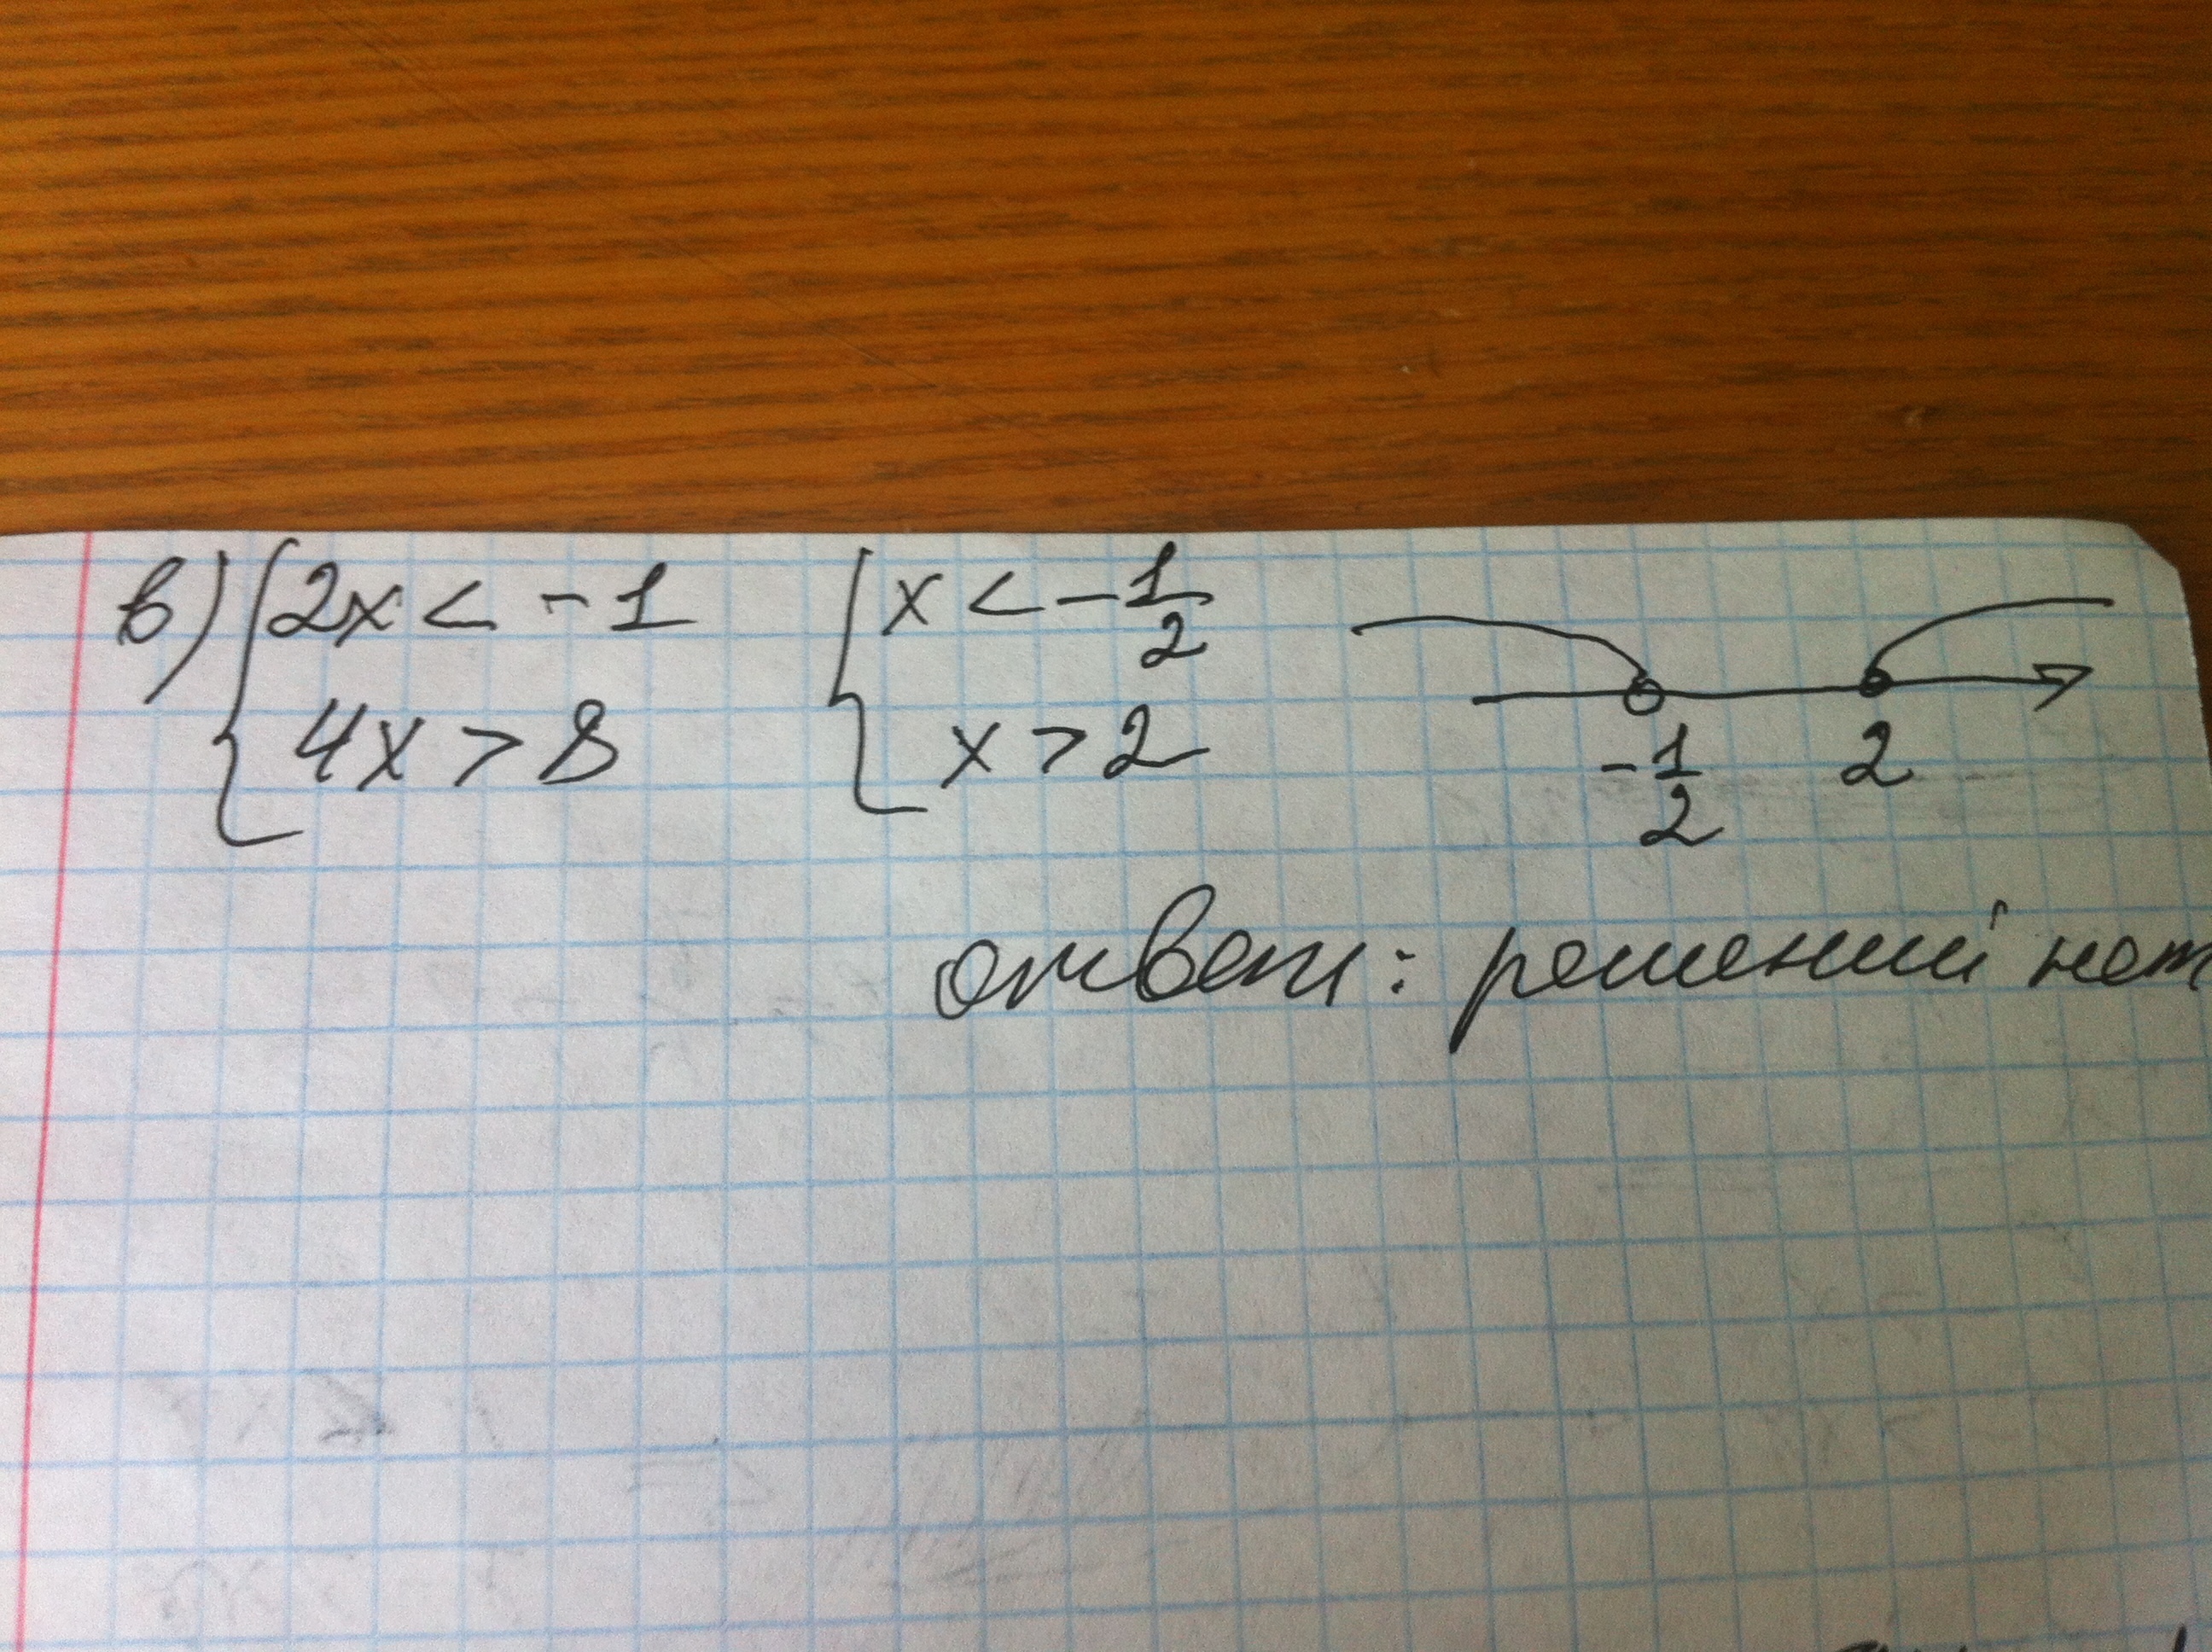 в) { 2x < -1 { x < -1/2
4x > 8 x > 2
-1/2 2
ответ: решений нет